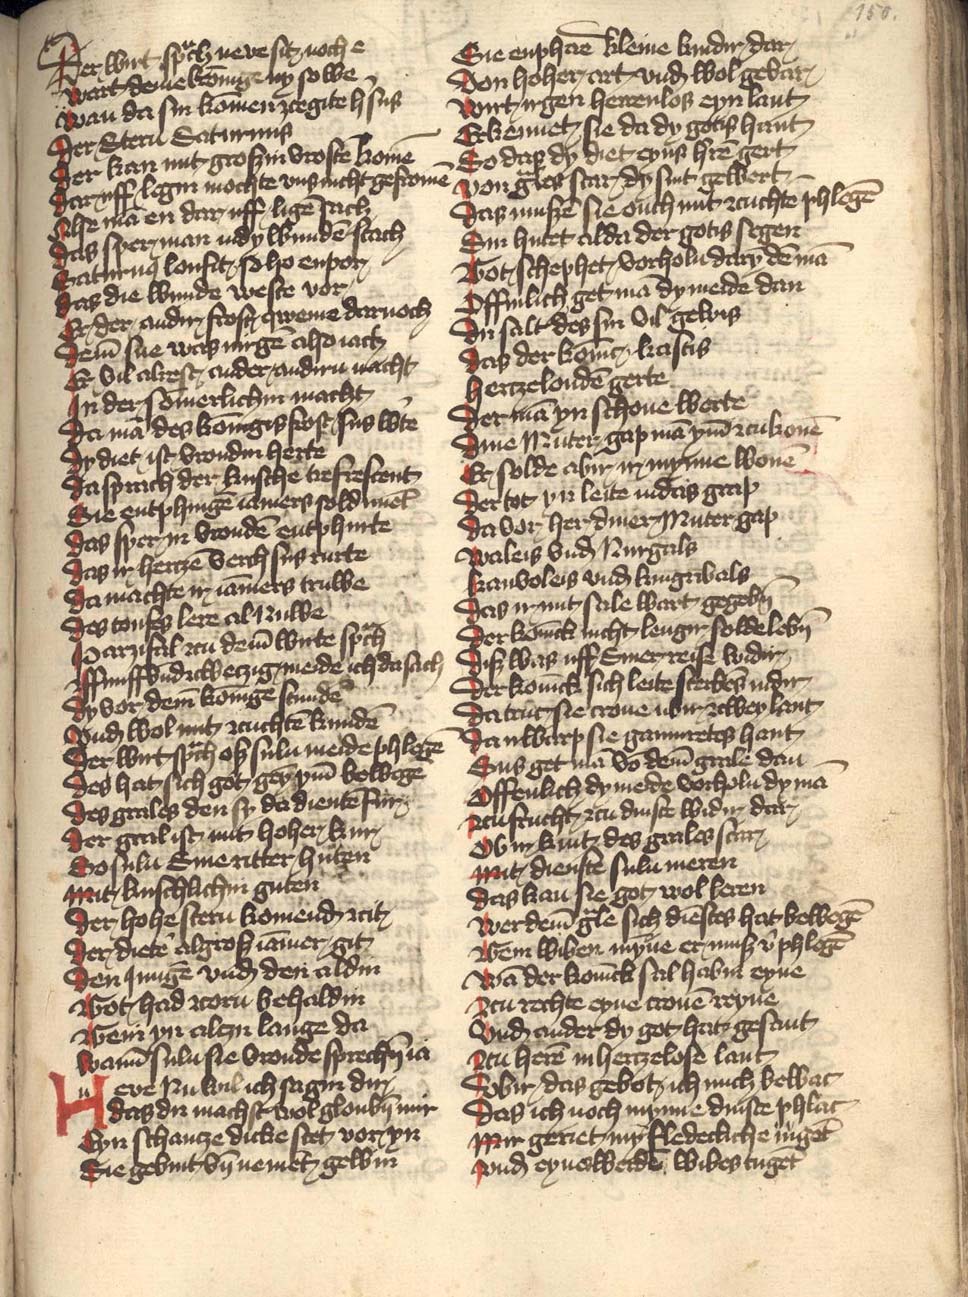 150.
Der wirt sp͛ch neve sit noch e
wart deme konīge ny so we
wan da sin komen zceigite h͛ sus
der Stern Saturnus
der kan mit groszin vroste komē
dar uff legin mochte vns nicht gefromē
Alse mā en dar uff ligē sach
das sper man in dy wundē stach
Saturnus loufit so ho enpor
das die wunde weste vor
Er der andir frost qweme dar noch
dem͞ sne was nirgē also iach
Er vil alrest an der andirn nacht
In der somerlichin macht
da mā des konīgis frost sus w͛te
dy diet ist vroudin herte
da sprach der kusche trefrescent
Sie entphingē iamers soldiment
das sper in vroudē entphurte
das ir hertzē verch sus rurte
da machte ir iamers truwe
des toufes lere al Nuwe
Parzifal zcu dem͞ wirte sp͛ch
uff unff vnd zcwetzig meide ich da sach
dy vor dem͞ konīge stundē
vnd wol mit zcuchte kundē
Der wirt sp͛ch osz suln meide phlegē
des hat sich got gey ym͞ bewegē
des grales den sy da dientē fur
der gral ist mit hoher kur
So suln Sine ritter hutен
Mit kuschlichin guten
der hohe stern komend zcit
der dietē al gros iamer git
den Jungē vnd den aldin
Got had zcorn behaldin
Wem yn alczu lange da
wann͞ suln sie vroude sprechin ia
Neve Nu wil ich sagin dir
das du machst wol gloubin mir
Eyn schantze dicke stet vor yn
Sie gebint vn̄ nemēt gewin
Sie enphaē kleine kindir dar
von hoher art vnd wol gevar
wirt irgen herrenlos eyn lant
Erkennet sie da dy gotis hant
So das dy diet eyns h͛rē gert
von g͛les scar dy sint gewert
das mussē sie ouch mit zcuchte phlegē
Sin hutet alda der gotis segen
Got schephet vorholn dary dē mā
Offinlich get mā dy meide dan
du salt des sin vil gewis
das der konīc kastis
hertzeloudē gerte
der mā yn schone werte
dine Muter gap mā ym͞ zcu konē
Er solde abir ir mynne wonē
der tot yn leite in das grap
da vor her diner Muter gap
waleis vnd Nurgals
kanvoleis vnd kingrivals
das ir mit sale wart gegebin
der konīck nicht lengir solde lebin
disz was uff Siner reise widir
der konīck sich leite sterbēs nidir
da truc sie crone ubir zcwey lant
da irwarp sie gamuretes hant
Sus get mā vō dem͞ grale dan
Offenlich dy meide vorholn dy mā
zcu frucht zcu dinste widir dar
Ob ir kint des grales scar
Mit dienste suln meren
das kan sie got wol leren
wer dem͞ g͛le sich diestes hat bewegē
Gein wiben my͞ne er musz v͛phlegē
wā der konīck sal habin eyne
zcu rechte eyne cronē reyne
vnd ander dy got hat gesant
zcu herē in hertzelose lant
vbir das gebot ich mich bewac
das ich noch mynne dinste phlac
Mir geriet my͞ fledeckliche iugēt
vnd eynes werdē wibes tugēt